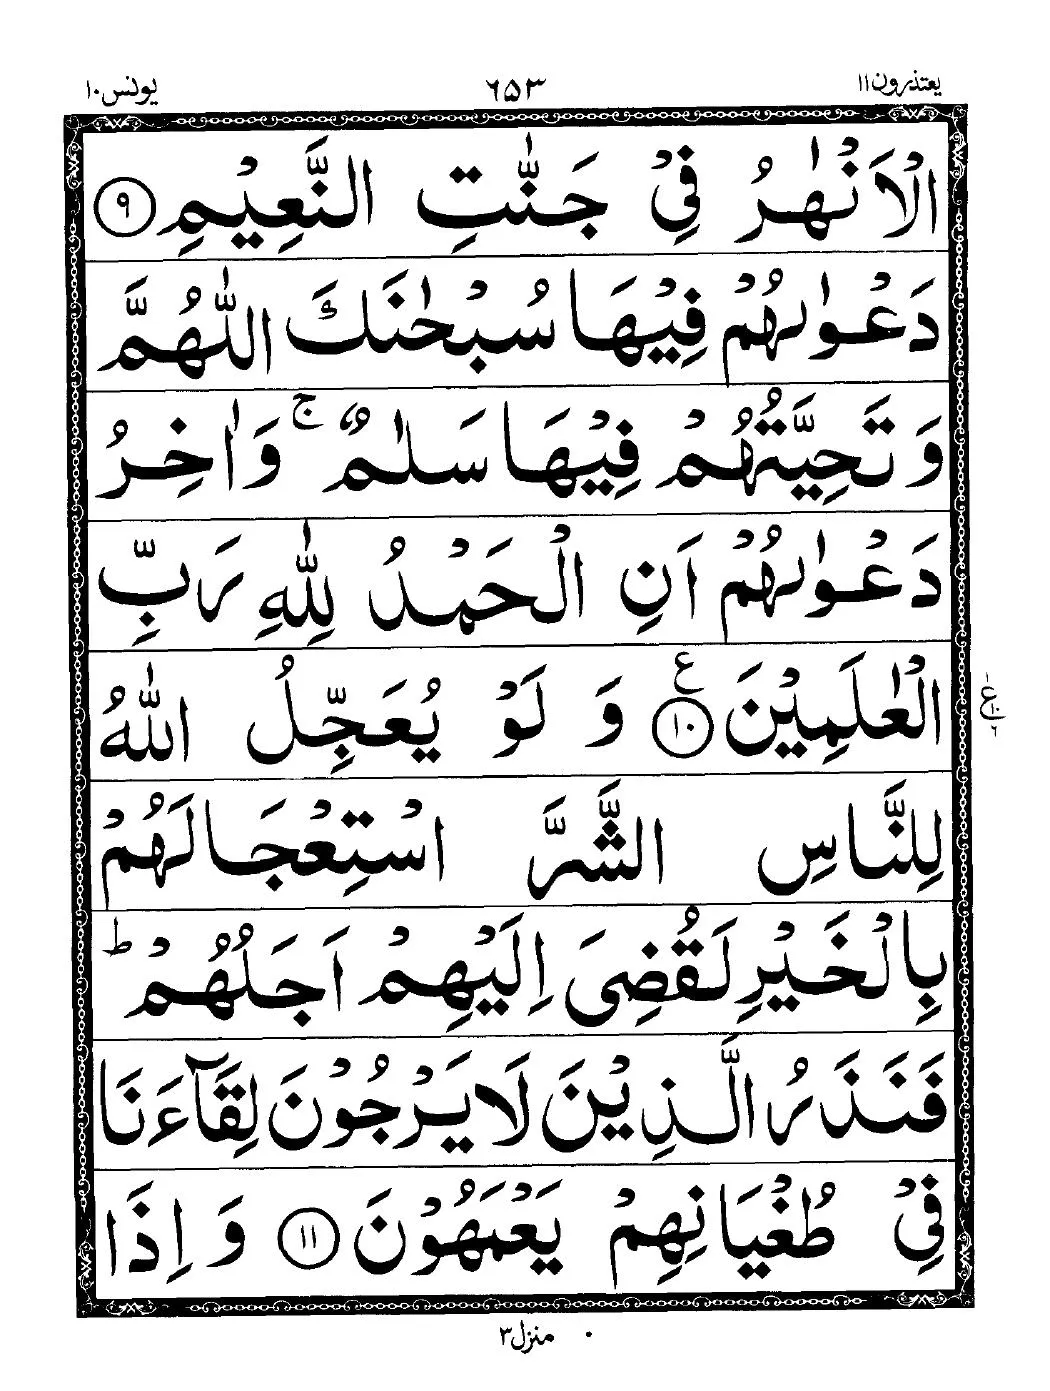 یعتذرون ۱۱ ۶۵۳ یونس ۱۰
الْاَنْهٰرُ فِیْ جَنّٰتِ النَّعِیْمِ ۹
دَعْوٰىهُمْ فِیْهَا سُبْحٰنَكَ اللّٰهُمَّ
وَ تَحِیَّتُهُمْ فِیْهَا سَلٰمٌ ۚ وَاٰخِرُ
دَعْوٰىهُمْ اَنِ الْحَمْدُ لِلّٰهِ رَبِّ
الْعٰلَمِیْنَ ۱۰ ع وَ لَوْ یُعَجِّلُ اللّٰهُ
ع ۱ ۱۰ ۶
لِلنَّاسِ الشَّرَّ اسْتِعْجَالَهُمْ
بِالْخَیْرِ لَقُضِیَ اِلَیْهِمْ اَجَلُهُمْ ؕ
فَنَذَرُ الَّذِیْنَ لَا یَرْجُوْنَ لِقَآءَنَا
فِیْ طُغْیَانِهِمْ یَعْمَهُوْنَ ۱۱ وَ اِذَا
منزل ۳